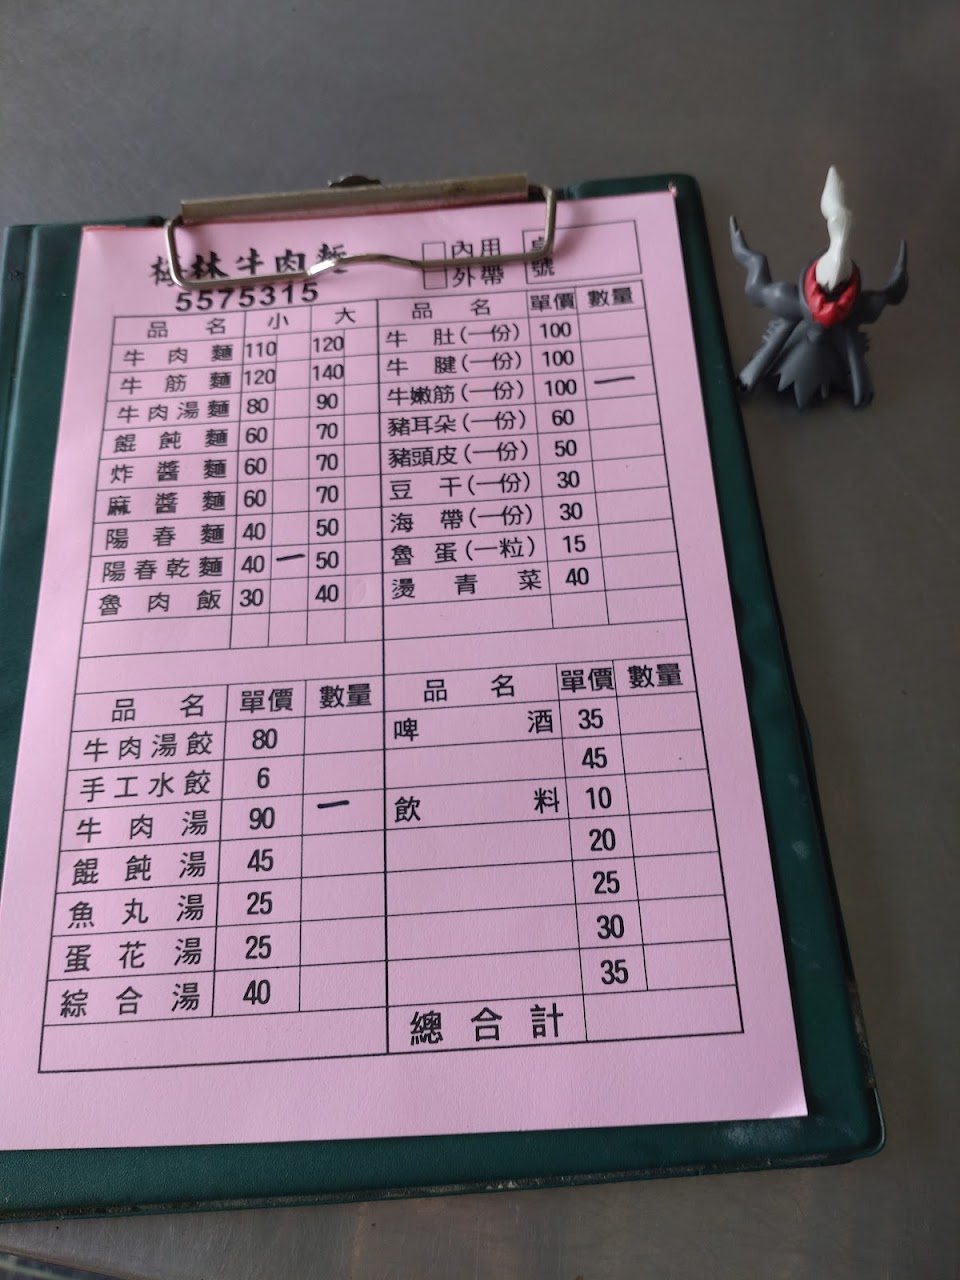 林牛肉麵
5575315
內用
外帶
桌號
品名 小 大
牛肉麵 110 120
牛筋麵 120 140
牛肉湯麵 80 90
餛飩麵 60 70
炸醬麵 60 70
麻醬麵 60 70
陽春麵 40 50
陽春乾麵 40 一 50
魯肉飯 30 40
品名 單價 數量
牛肚(一份) 100
牛腱(一份) 100
牛嫩筋(一份) 100 一
豬耳朵(一份) 60
豬頭皮(一份) 50
豆干(一份) 30
海帶(一份) 30
魯蛋(一粒) 15
燙青菜 40
品名 單價 數量
牛肉湯餃 80
手工水餃 6
牛肉湯 90 一
餛飩湯 45
魚丸湯 25
蛋花湯 25
綜合湯 40
品名 單價 數量
啤酒 35
45
飲料 10
20
25
30
35
總合計